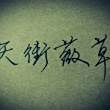 天街薇草